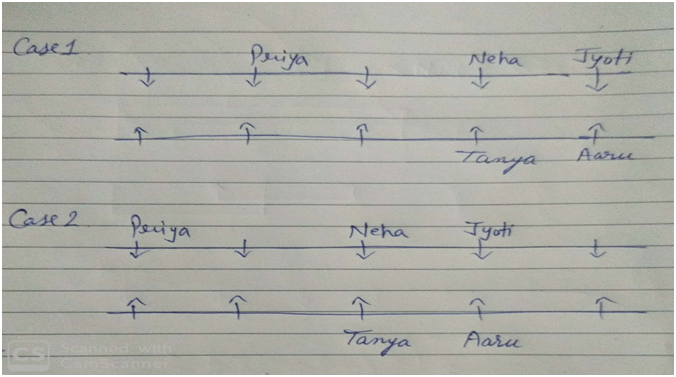 Case 1
Priya Neha Jyoti
Tanya Aaru
Case 2
Priya Neha Jyoti
Tanya Aaru
CS Scanned with
CamScanner